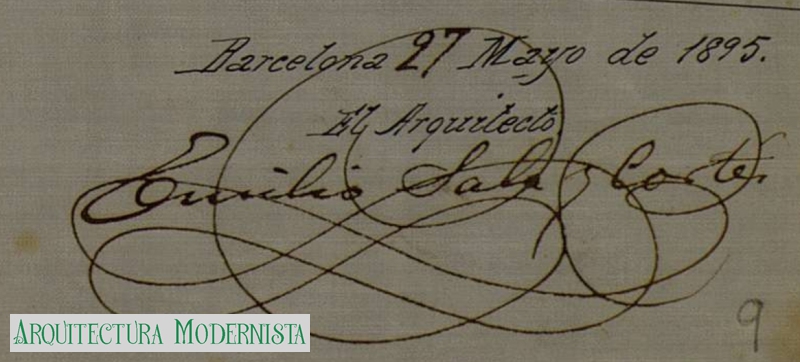 Barcelona 27 Mayo de 1895.
El Arquitecto
Emilio Sala y Cortés
9
ARQUITECTURA MODERNISTA